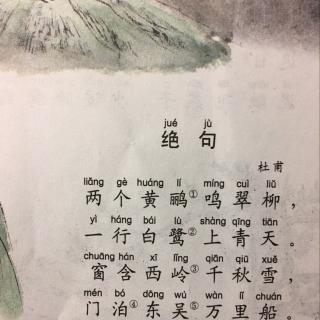 jué jù
绝句
杜甫
liǎng gè huáng lí míng cuì liǔ
两个黄鹂①鸣翠柳，
yì háng bái lù shàng qīng tiān
一行白鹭②上青天。
chuāng hán xī lǐng qiān qiū xuě
窗含西岭③千秋雪，
mén bó dōng wú wàn lǐ chuán
门泊④东吴⑤万里船。